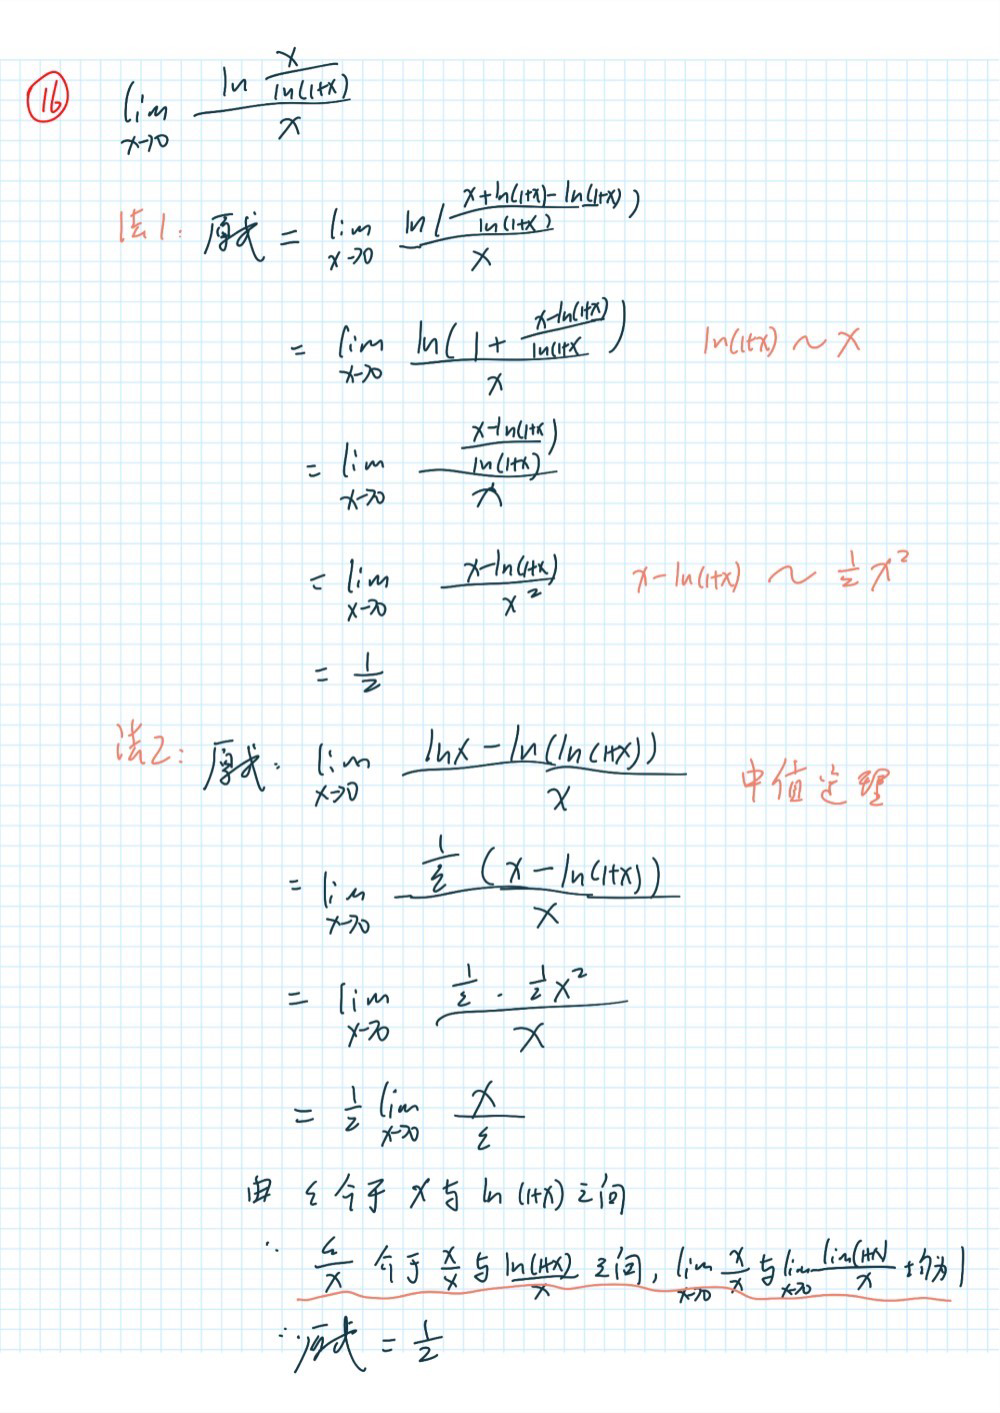 ⑯ lim_{x→0} \frac{ln \frac{x}{ln(1+x)}}{x}
法1: 原式 = lim_{x→0} \frac{ln(\frac{x+ln(1+x)-ln(1+x)}{ln(1+x)})}{x}
= lim_{x→0} \frac{ln(1+\frac{x-ln(1+x)}{ln(1+x})}{x} ln(1+x) ~ x
= lim_{x→0} \frac{\frac{x-ln(1+x)}{ln(1+x)}}{x}
= lim_{x→0} \frac{x-ln(1+x)}{x^2} x-ln(1+x) ~ \frac{1}{2}x^2
= \frac{1}{2}
法2: 原式. lim_{x→0} \frac{lnx-ln(ln(1+x))}{x} 中值定理
= lim_{x→0} \frac{\frac{1}{ξ}(x-ln(1+x))}{x}
= lim_{x→0} \frac{\frac{1}{ξ}·\frac{1}{2}x^2}{x}
= \frac{1}{2} lim_{x→0} \frac{x}{ξ}
由 ξ介于 x与 ln(1+x)之间
∴ \frac{ξ}{x} 介于 \frac{x}{x} 与 \frac{ln(1+x)}{x} 之间, lim_{x→0} \frac{x}{x} 与 lim_{x→0} \frac{lin(1+x)}{x} 均为1
∴原式 = \frac{1}{2}